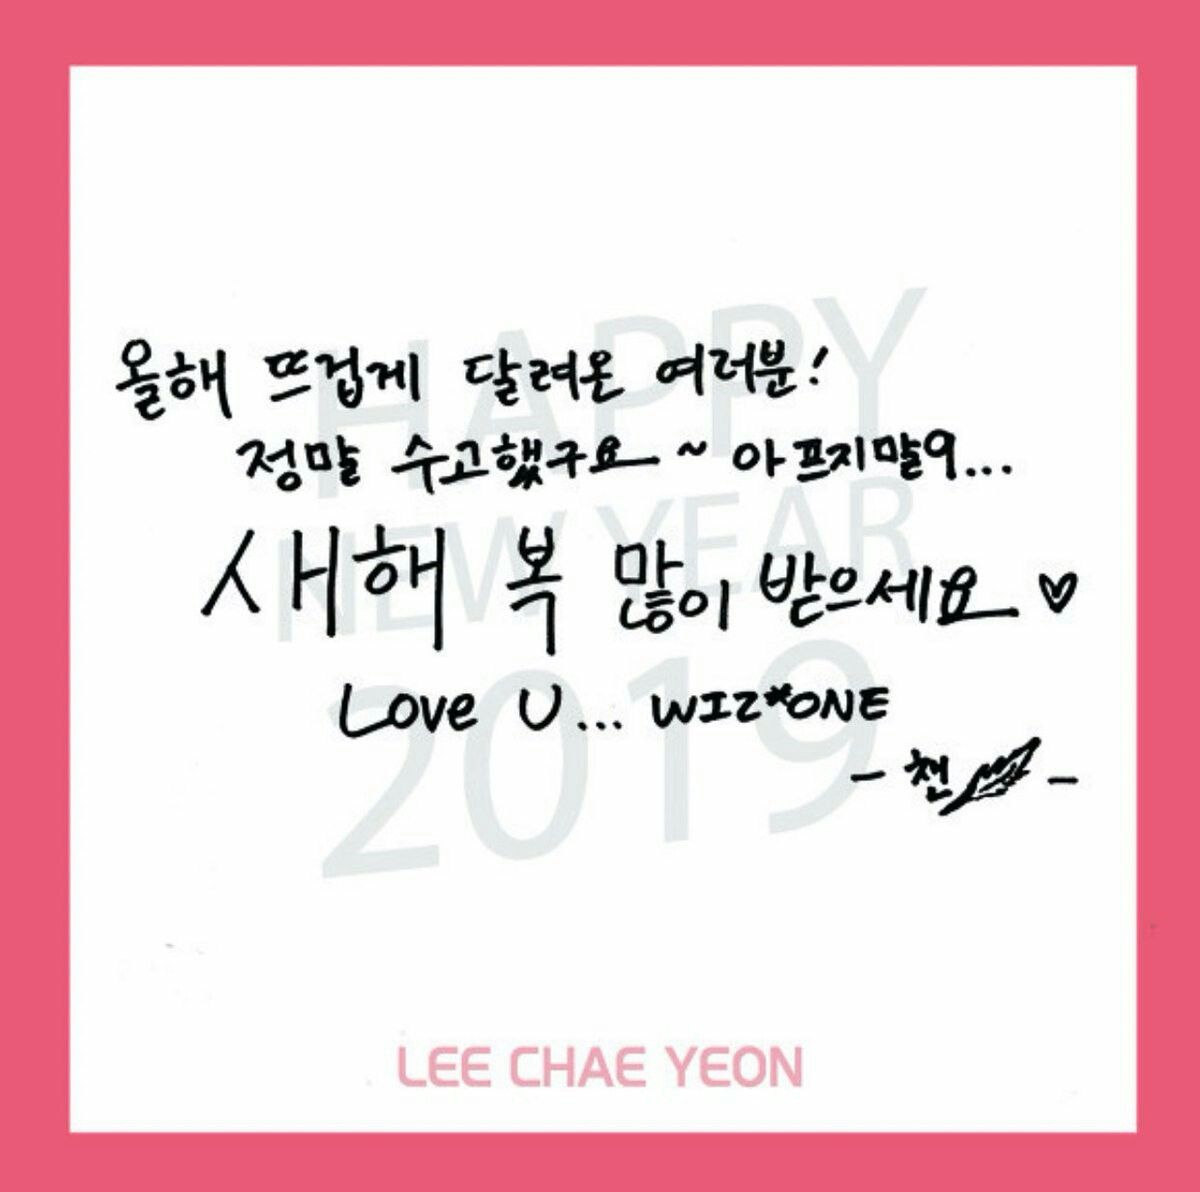 올해 뜨겁게 달려온 여러분!
정말 수고했구요~ 아프지말9...
새해 복 많이 받으세요♡
Love U... WIZ*ONE
- 챈 -
HAPPY
NEW YEAR
2019
LEE CHAE YEON